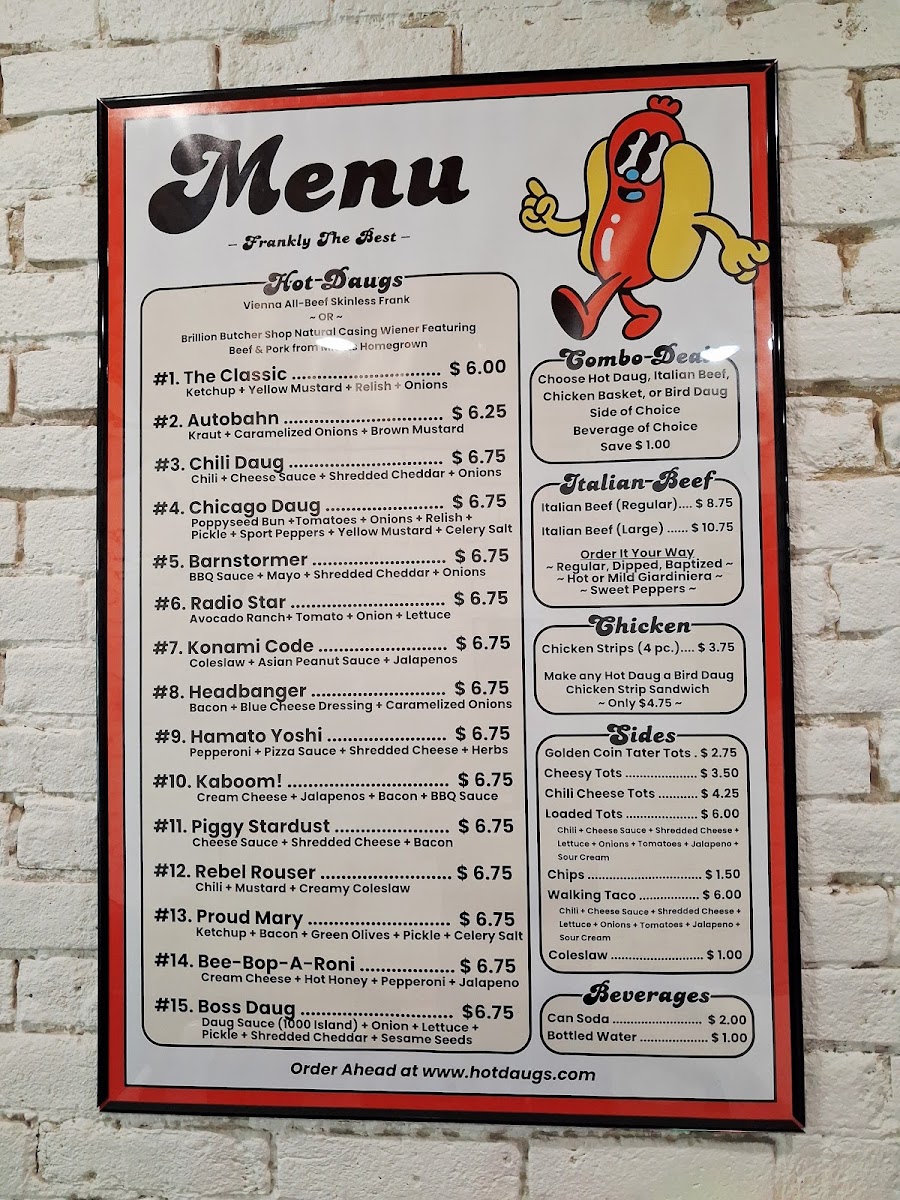 Menu
– Frankly The Best –
Hot-Daugs
Vienna All-Beef Skinless Frank
~ OR ~
Brillion Butcher Shop Natural Casing Wiener Featuring
Beef & Pork from Homegrown
#1. The Classic ........................... $ 6.00
Ketchup + Yellow Mustard + Relish + Onions
#2. Autobahn ................................ $ 6.25
Kraut + Caramelized Onions + Brown Mustard
#3. Chili Daug ............................... $ 6.75
Chili + Cheese Sauce + Shredded Cheddar + Onions
#4. Chicago Daug ........................ $ 6.75
Poppyseed Bun +Tomatoes + Onions + Relish +
Pickle + Sport Peppers + Yellow Mustard + Celery Salt
#5. Barnstormer ........................... $ 6.75
BBQ Sauce + Mayo + Shredded Cheddar + Onions
#6. Radio Star ............................... $ 6.75
Avocado Ranch+ Tomato + Onion + Lettuce
#7. Konami Code .......................... $ 6.75
Coleslaw + Asian Peanut Sauce + Jalapenos
#8. Headbanger ........................... $ 6.75
Bacon + Blue Cheese Dressing + Caramelized Onions
#9. Hamato Yoshi ........................ $ 6.75
Pepperoni + Pizza Sauce + Shredded Cheese + Herbs
#10. Kaboom! ................................ $ 6.75
Cream Cheese + Jalapenos + Bacon + BBQ Sauce
#11. Piggy Stardust ....................... $ 6.75
Cheese Sauce + Shredded Cheese + Bacon
#12. Rebel Rouser .......................... $ 6.75
Chili + Mustard + Creamy Coleslaw
#13. Proud Mary ............................ $ 6.75
Ketchup + Bacon + Green Olives + Pickle + Celery Salt
#14. Bee-Bop-A-Roni ................... $ 6.75
Cream Cheese + Hot Honey + Pepperoni + Jalapeno
#15. Boss Daug ............................... $6.75
Daug Sauce (1000 Island) + Onion + Lettuce +
Pickle + Shredded Cheddar + Sesame Seeds
Combo-Deal
Choose Hot Daug, Italian Beef,
Chicken Basket, or Bird Daug
Side of Choice
Beverage of Choice
Save $ 1.00
Italian-Beef
Italian Beef (Regular).... $ 8.75
Italian Beef (Large) ...... $ 10.75
Order It Your Way
~ Regular, Dipped, Baptized ~
~ Hot or Mild Giardiniera ~
~ Sweet Peppers ~
Chicken
Chicken Strips (4 pc.).... $ 3.75
Make any Hot Daug a Bird Daug
Chicken Strip Sandwich
~ Only $4.75 ~
Sides
Golden Coin Tater Tots . $ 2.75
Cheesy Tots .................. $ 3.50
Chili Cheese Tots .......... $ 4.25
Loaded Tots .................. $ 6.00
Chili + Cheese Sauce + Shredded Cheese +
Lettuce + Onions + Tomatoes + Jalapeno +
Sour Cream
Chips ............................. $ 1.50
Walking Taco ................ $ 6.00
Chili + Cheese Sauce + Shredded Cheese +
Lettuce + Onions + Tomatoes + Jalapeno +
Sour Cream
Coleslaw ........................ $ 1.00
Beverages
Can Soda ........................ $ 2.00
Bottled Water .................. $ 1.00
Order Ahead at www.hotdaugs.com